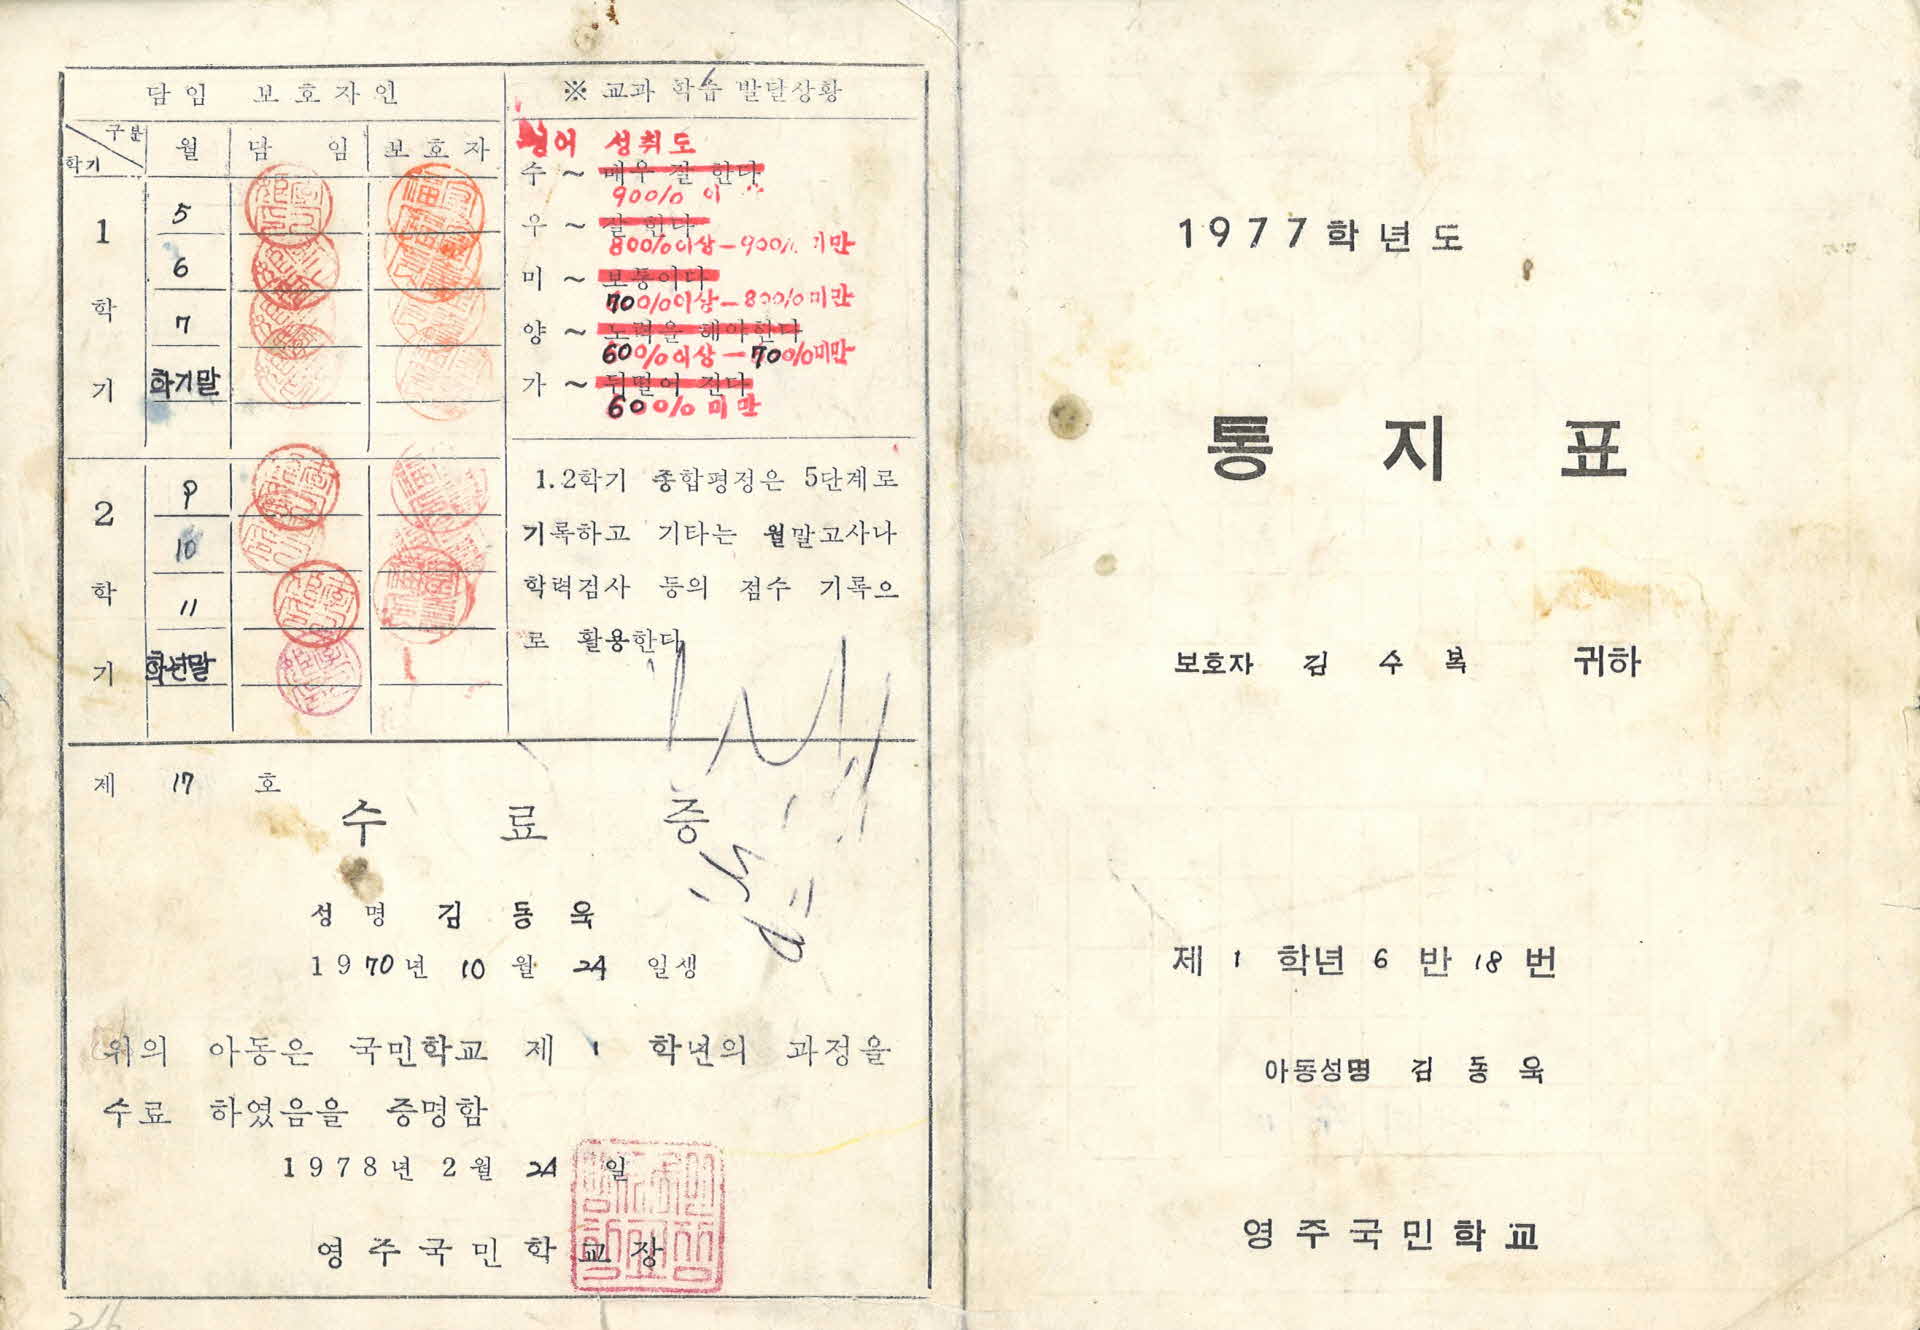 담임 보호자인
구분
학기
월 담 임 보호자
1
학
기
5
6
7
학기말
2
학
기
9
10
11
학년말
※ 교과 학습 발달상황
성취도
수 ~ 매우 잘 한다
90% 이
우 ~ 잘 한다
80%이상-90% 미만
미 ~ 보통이다
70%이상-80%미만
양 ~ 노력을 해야한다
60%이상-70%미만
가 ~ 뒤떨어 진다
60%미만
1.2학기 종합평정은 5단계로
기록하고 기타는 월말고사나
학력검사 등의 점수 기록으
로 활용한다
제 17 호
수 료 증
성 명 김 동 욱
1970년 10월 24일생
위의 아동은 국민학교 제 1 학년의 과정을
수료 하였음을 증명함
1978년 2월 24일
영주국민학교장
1977학년도
통 지 표
보호자 김 수 복 귀하
제 1 학년 6 반 18 번
아동성명 김 동 욱
영주국민학교